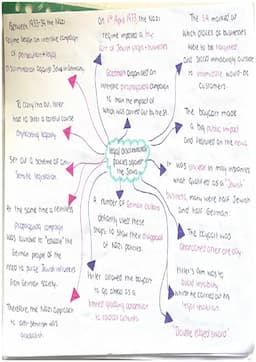 Between 1933-34 the Nazi
regime began an intensive campaign
of persecution + legal
discrimination against Jews in Germany.
To carry this out, Hitler
had to steer a careful course
Employing legality
Set out a scheme of anti-
Semitic legislation
At the same time a relentless
Propaganda campaign
was launched to "educate" the
German people of the
need to purge Jewish influences
from German society.
Therefore, the Nazi approach
to anti-semitism was
gradualist.
On 1st April 1933, the Nazi
regime imposed a
boycott of Jewish shops + businesses
Goebbels organised an
intensive propaganda campaign
to max the impact of
which was carried out by the SA.
legal discrimination
policies against
the Jews
A number of German citizens
defiantly used these
shops to show their disapproval
of Nazi policies
Hitler allowed the boycott
to go ahead as a
limited grudging concession
to radical activists
The SA marked out
which places of businesses
were to be targeted
and stood menacingly outside
to intimidate would-be
customers.
The boycott made
a big public impact
and featured on the news
It was unclear as many industries
what qualified as a "Jewish"
business, many were half Jewish
and half German.
The boycott was
abandoned after one day
Hitler's aim was to
avoid instability
whilst he carried out his
'legal revolution'.
"Double edged sword"